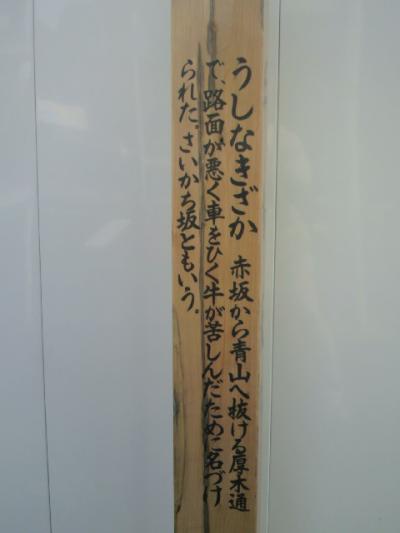 うしなきざか 赤坂から青山へ抜ける厚木通
で、路面が悪く車をひく牛が苦しんだために名づけ
られた。さいかち坂ともいう。